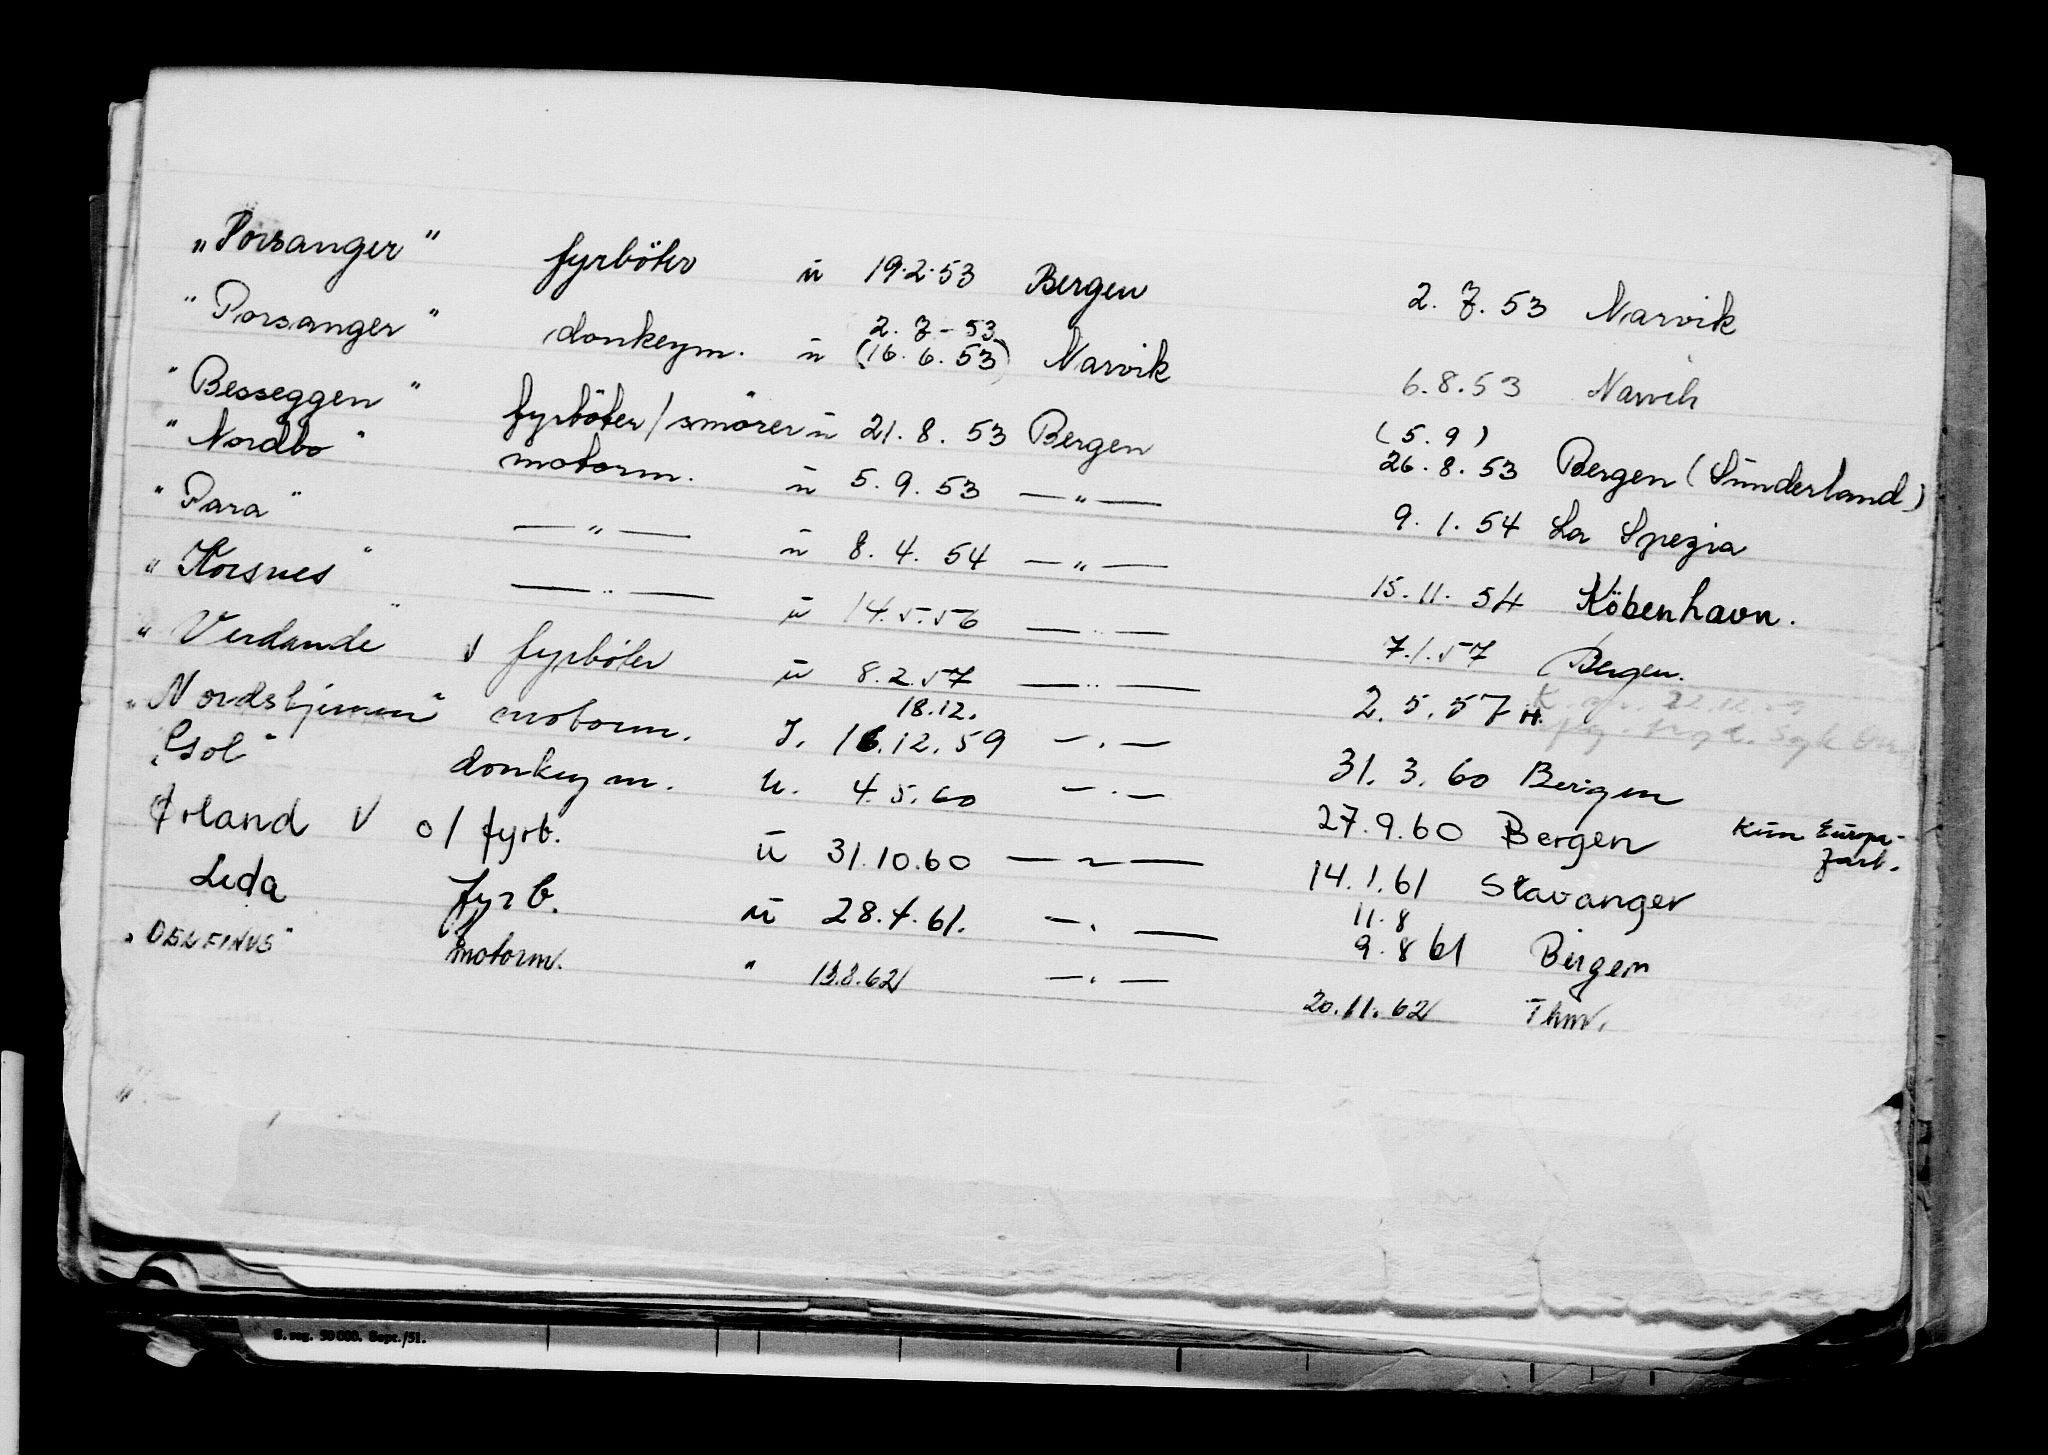 "Porsanger" fyrböter u 19.2.53 Bergen 2.7.53 Narvik
"Porsanger" donkeym. u 2.7-53 (16.6.53) Narvik 6.8.53 Narvik
"Besseggen" fyrböter/smörer u 21.8.53 Bergen (5.9) 26.8.53 Bergen (Sunderland)
"Nordbo" motorm. u 5.9.53 —"— 9.1.54 La Spezia
"Para" —"— u 8.4.54 —"— 15.11.54 Köbenhavn.
"Korsnes" —"— u 14.5.56 —"— 7.1.57 Bergen.
"Verdande" v fyrböter u 8.2.57 —"— 2.5.57 H.
"Nordstjernen" motorm. J. 18.12. 16.12.59 —"— 31.3.60 Bergen
"Sol" donkeym. u. 4.5.60 —"— 27.9.60 Bergen Kun Europa-fart.
Ørland v o/fyrb. u 31.10.60 —"— 14.1.61 Stavanger
Leda fyrb. u 28.4.61. —"— 11.8 9.8 61 Bergen
"DELFINUS" motorm. " 13.8.62 —"— 20.11.62 Thm.
S. reg. 50 000. Sept./51.